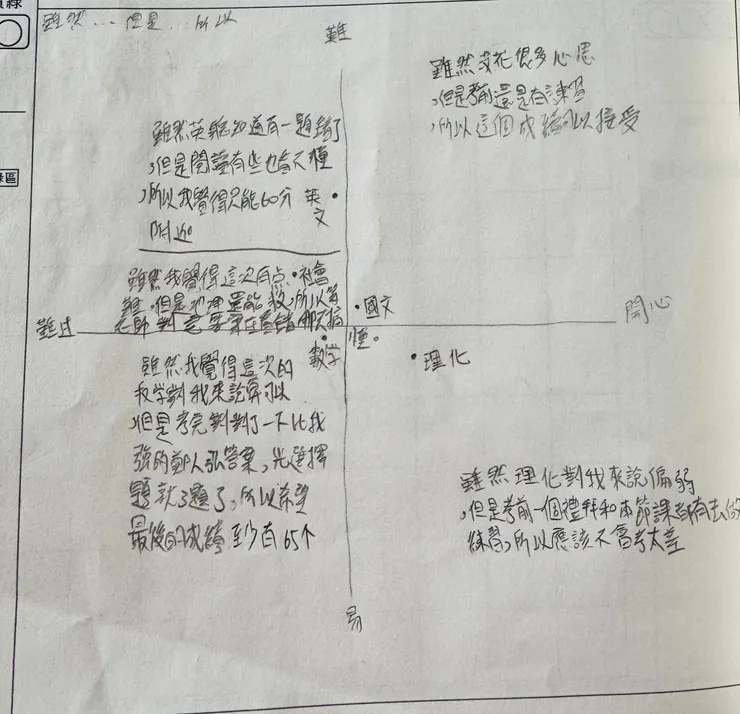 雖然…但是…所以
難
雖然沒花很多心思
,但是考前還是有練習
,所以這個成績可以接受
雖然英聽知道有一題錯了
,但是閱讀有些也看不懂
,所以我覺得只能60分
附近
英文
雖然我覺得這次有点
難,但是地理還能救,所以等
老師對完
社會
國文
難過
開心
懂。
数学
理化
雖然我覺得這次的
数学對我來說算可以
,但是考完對對了一下比我
強的鄭人弘答案,光選擇
題就了題了,所以希望
最後的成績至少有65个
雖然理化對我來說偏弱
,但是考前一個禮拜和本節課都有去做
練習,所以應該不會考太差
易